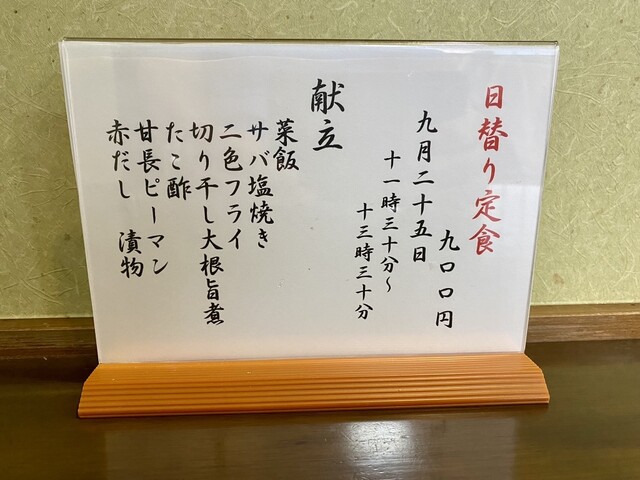 日替り定食
九〇〇円
九月二十五日
十一時三十分〜
十三時三十分
献立
菜飯
サバ塩焼き
二色フライ
切り干し大根旨煮
たこ酢
甘長ピーマン
赤だし　漬物